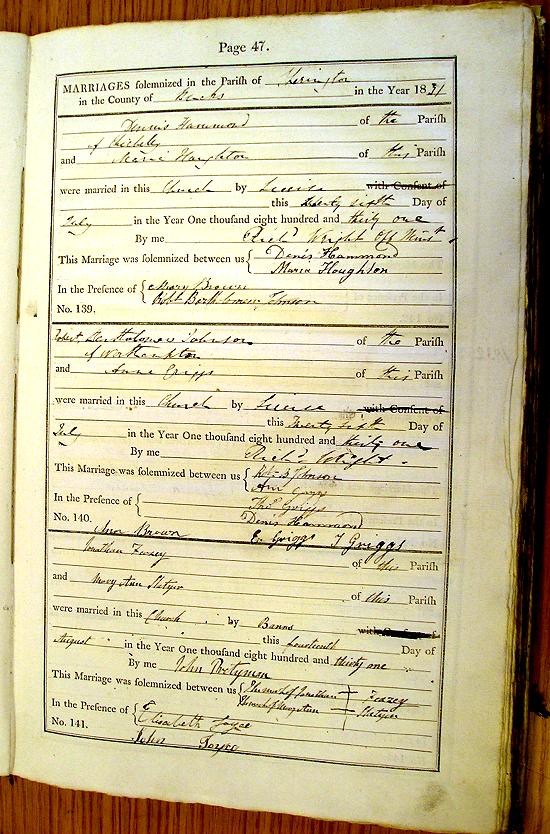 Page 47.
MARRIAGES solemnized in the Parish of Sherington
in the County of Bucks in the Year 1831
Dennis Hammond of the Parish
of Chichelly
and Maria Houghton of this Parish
were married in this Church by Licence with Consent of
this twenty sixth Day of
July in the Year One thousand eight hundred and thirty one
By me Richd Wright Off Minr
This Marriage was solemnized between us Denis Hammond
Maria Houghton
In the Presence of Mary Brown
Robt Bartholomew Johnson
No. 139.
Robert Bartholomew Johnson of the Parish
of Northampton
and Anne Griggs of this Parish
were married in this Church by Licence with Consent of
this Twenty sixth Day of
July in the Year One thousand eight hundred and thirty one
By me Richd Wright
This Marriage was solemnized between us Robt B Johnson
Ann Griggs
In the Presence of Thos Griggs
Denis Hammond
No. 140.
Ann Brown E. Griggs J Griggs
Jonathan Feazey of this Parish
and Mary Ann Slatyer of this Parish
were married in this Church by Banns with Consent of
this fourteenth Day of
August in the Year One thousand eight hundred and thirty one
By me John Pretyman
This Marriage was solemnized between us The mark of Jonathan Feazey
The mark of Mary Ann Slatyer
In the Presence of Elisabeth Joyce
No. 141.
John Joyce